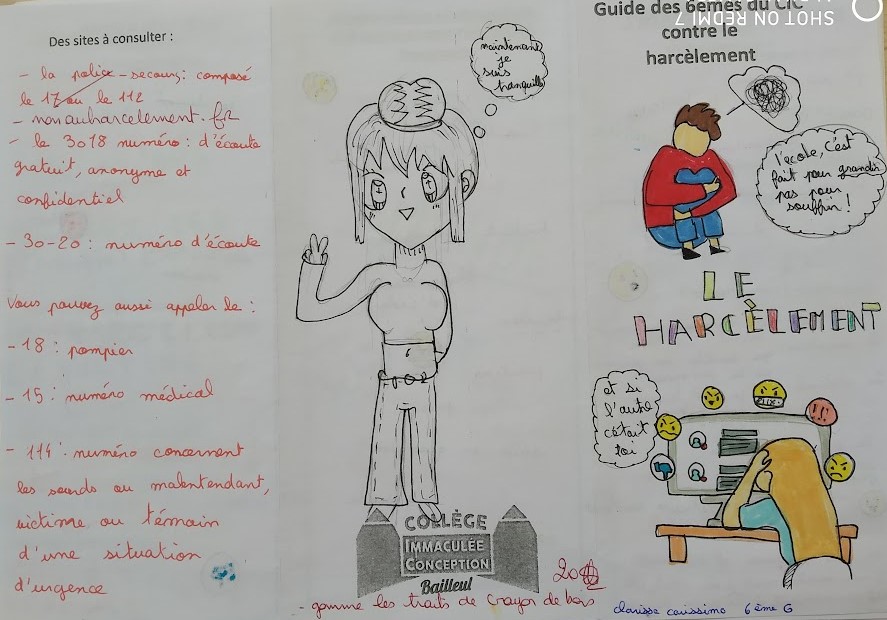 Des sites à consulter :
- la police-secours : composé
le 17 ou le 112
- nonauharcelement.fr
- le 3018 numéro : d'écoute
gratuit, anonyme et
confidentiel
- 30-20 : numéro d'écoute
Vous pouvez aussi appeler le :
- 18 : pompier
- 15 : numéro médical
- 114 : numéro concernent
les sourds ou malentendant,
victime ou témoin
d'une situation
d'urgence
maintenant
je
suis
tranquille
COLLÈGE
IMMACULÉE
CONCEPTION
Bailleul
- gomme les traits de crayon de bois
SHOT ON REDMI 7
Guide des 6èmes du CIC
contre le
harcèlement
l'école, c'est
fait pour grandir
pas pour
souffrir !
LE
HARCÈLEMENT
et si
l'autre
c'était
toi
clarisse carissimo 6ème G